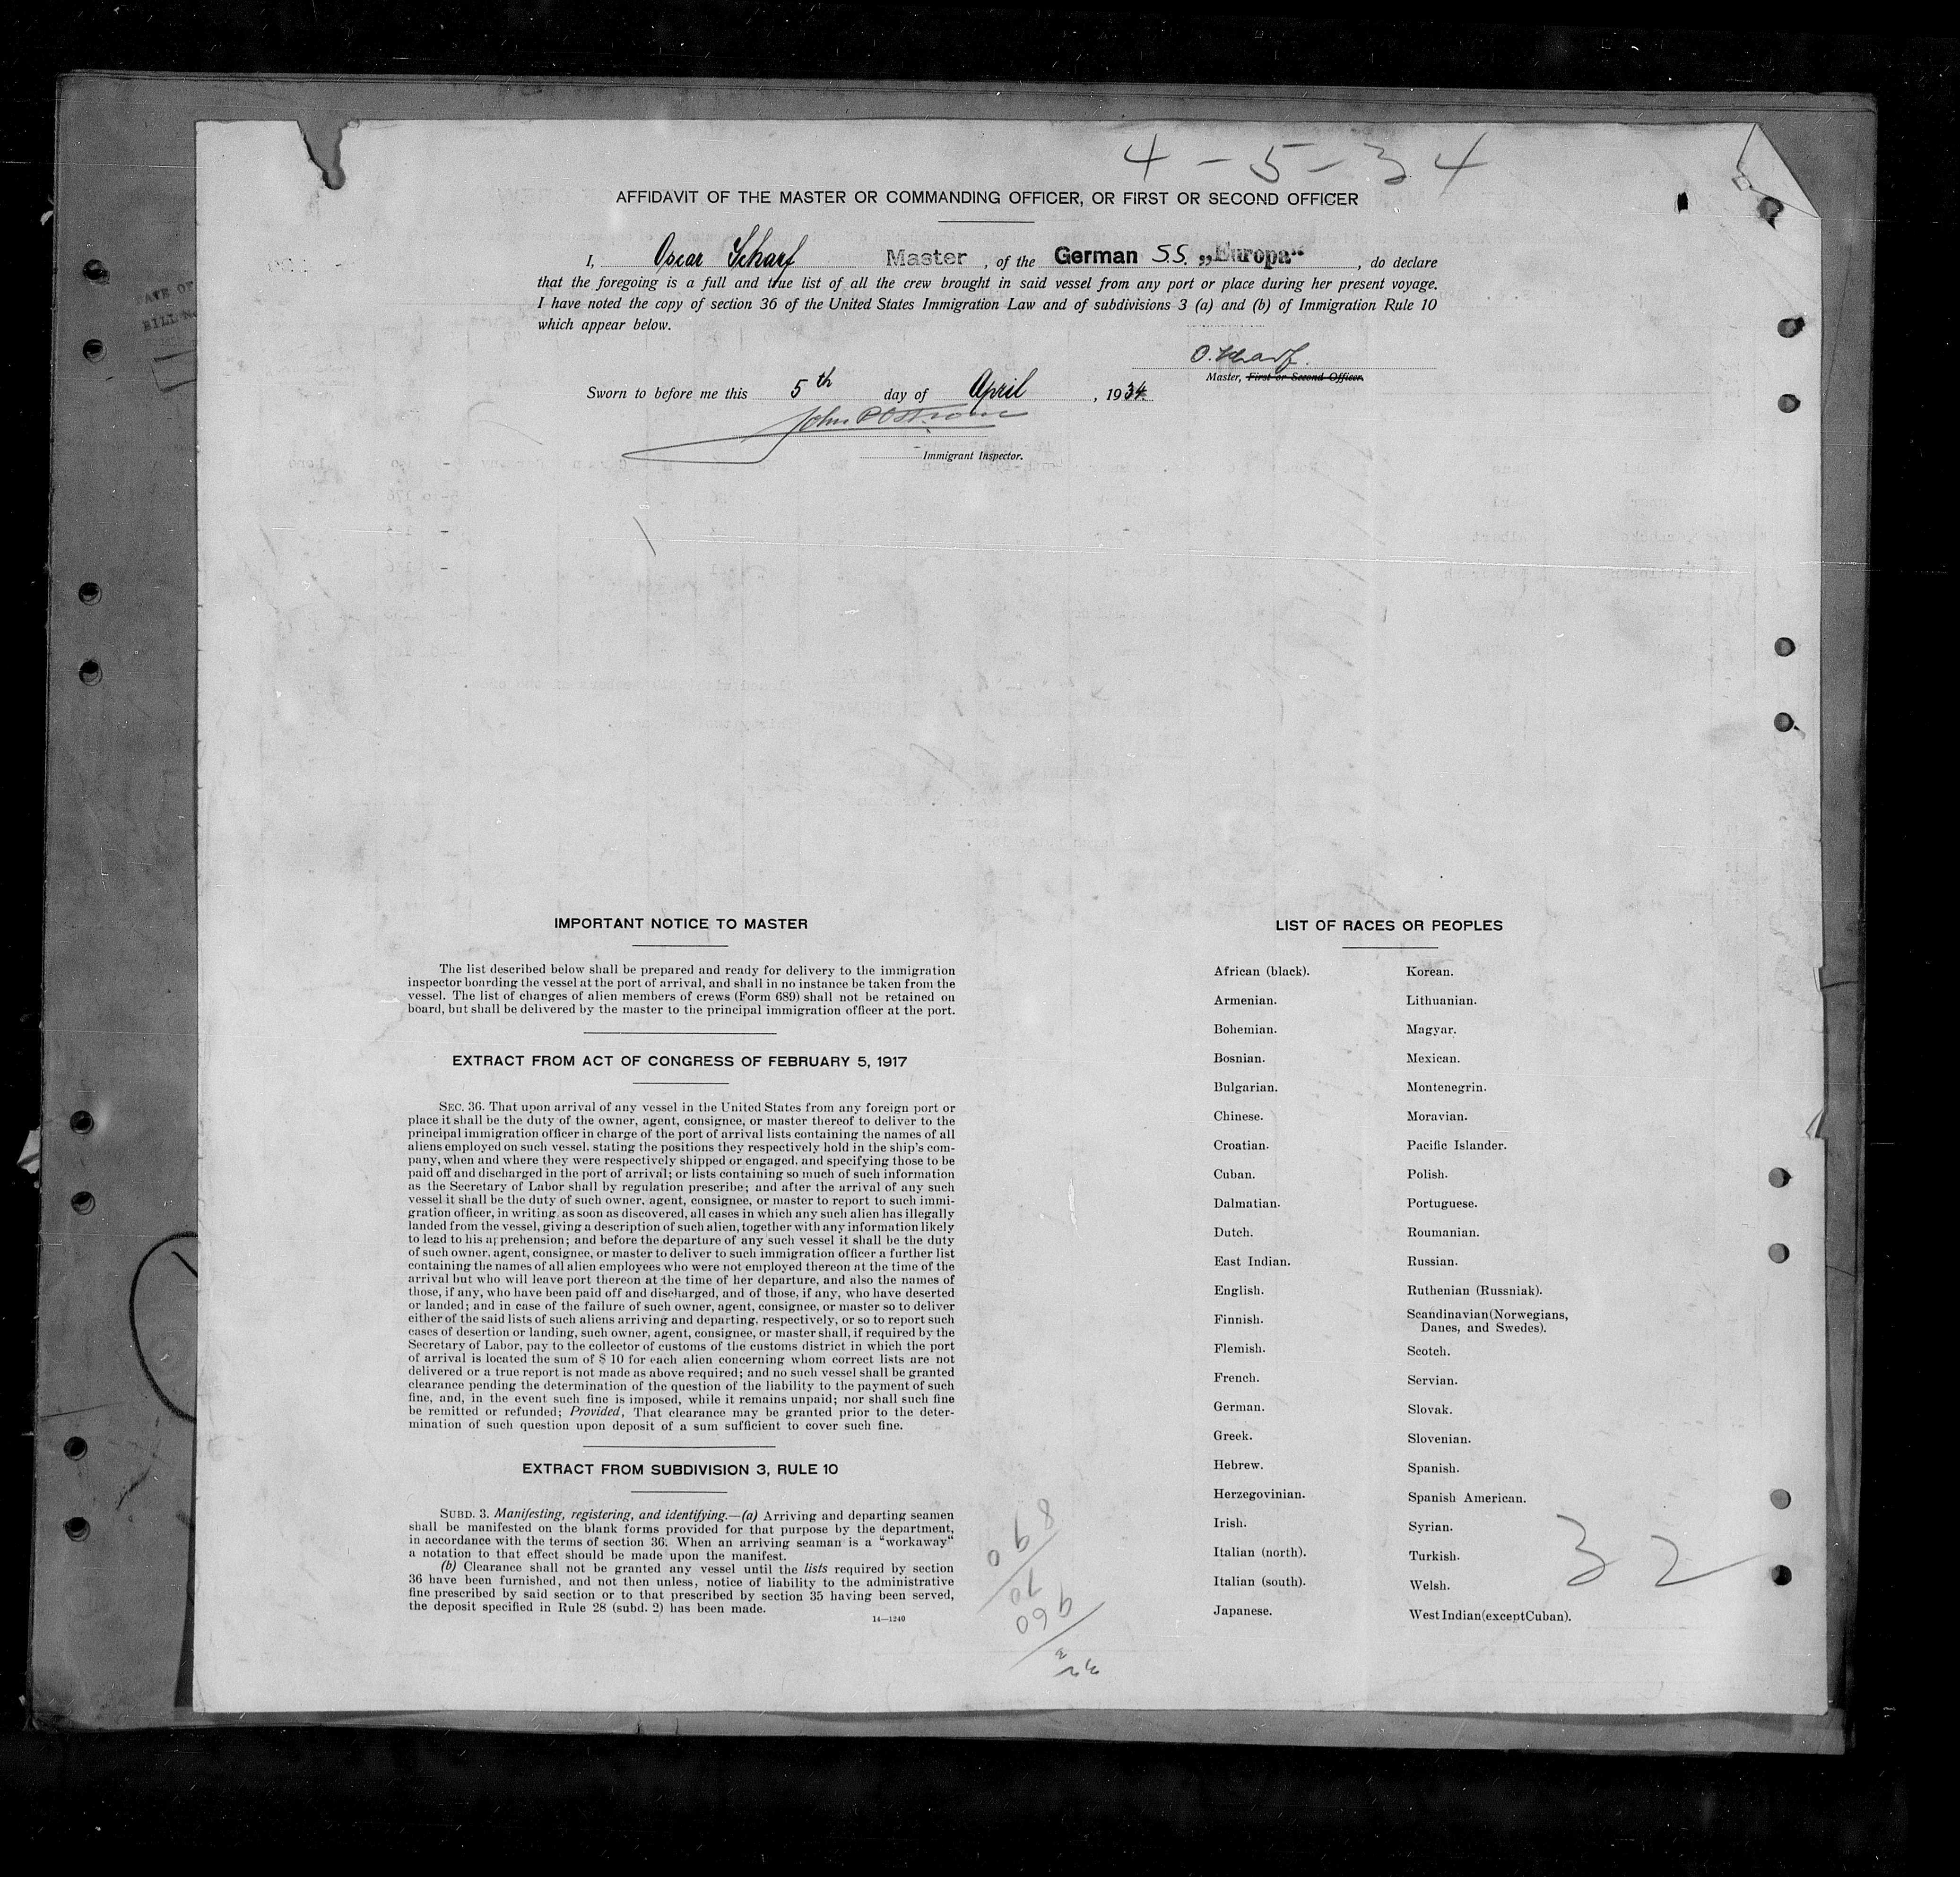 4 - 5 - 34
AFFIDAVIT OF THE MASTER OR COMMANDING OFFICER, OR FIRST OR SECOND OFFICER
I, Oscar Scharf Master, of the German S.S. „Europa“, do declare
that the foregoing is a full and true list of all the crew brought in said vessel from any port or place during her present voyage.
I have noted the copy of section 36 of the United States Immigration Law and of subdivisions 3 (a) and (b) of Immigration Rule 10
which appear below.
O. Scharf.
Master, First or Second Officer.
Sworn to before me this 5th day of April, 1934
Immigrant Inspector.
IMPORTANT NOTICE TO MASTER
The list described below shall be prepared and ready for delivery to the immigration
inspector boarding the vessel at the port of arrival, and shall in no instance be taken from the
vessel. The list of changes of alien members of crews (Form 689) shall not be retained on
board, but shall be delivered by the master to the principal immigration officer at the port.
EXTRACT FROM ACT OF CONGRESS OF FEBRUARY 5, 1917
SEC. 36. That upon arrival of any vessel in the United States from any foreign port or
place it shall be the duty of the owner, agent, consignee, or master thereof to deliver to the
principal immigration officer in charge of the port of arrival lists containing the names of all
aliens employed on such vessel, stating the positions they respectively hold in the ship's com-
pany, when and where they were respectively shipped or engaged, and specifying those to be
paid off and discharged in the port of arrival; or lists containing so much of such information
as the Secretary of Labor shall by regulation prescribe; and after the arrival of any such
vessel it shall be the duty of such owner, agent, consignee, or master to report to such immi-
gration officer, in writing, as soon as discovered, all cases in which any such alien has illegally
landed from the vessel, giving a description of such alien, together with any information likely
to lead to his apprehension; and before the departure of any such vessel it shall be the duty
of such owner, agent, consignee, or master to deliver to such immigration officer a further list
containing the names of all alien employees who were not employed thereon at the time of the
arrival but who will leave port thereon at the time of her departure, and also the names of
those, if any, who have been paid off and discharged, and of those, if any, who have deserted
or landed; and in case of the failure of such owner, agent, consignee, or master so to deliver
either of the said lists of such aliens arriving and departing, respectively, or so to report such
cases of desertion or landing, such owner, agent, consignee, or master shall, if required by the
Secretary of Labor, pay to the collector of customs of the customs district in which the port
of arrival is located the sum of $ 10 for each alien concerning whom correct lists are not
delivered or a true report is not made as above required; and no such vessel shall be granted
clearance pending the determination of the question of the liability to the payment of such
fine, and, in the event such fine is imposed, while it remains unpaid; nor shall such fine
be remitted or refunded; Provided, That clearance may be granted prior to the deter-
mination of such question upon deposit of a sum sufficient to cover such fine.
EXTRACT FROM SUBDIVISION 3, RULE 10
SUBD. 3. Manifesting, registering, and identifying.—(a) Arriving and departing seamen
shall be manifested on the blank forms provided for that purpose by the department,
in accordance with the terms of section 36. When an arriving seaman is a “workaway“
a notation to that effect should be made upon the manifest.
(b) Clearance shall not be granted any vessel until the lists required by section
36 have been furnished, and not then unless, notice of liability to the administrative
fine prescribed by said section or to that prescribed by section 35 having been served,
the deposit specified in Rule 28 (subd. 2) has been made.
14—1240
LIST OF RACES OR PEOPLES
African (black).
Armenian.
Bohemian.
Bosnian.
Bulgarian.
Chinese.
Croatian.
Cuban.
Dalmatian.
Dutch.
East Indian.
English.
Finnish.
Flemish.
French.
German.
Greek.
Hebrew.
Herzegovinian.
Irish.
Italian (north).
Italian (south).
Japanese.
Korean.
Lithuanian.
Magyar.
Mexican.
Montenegrin.
Moravian.
Pacific Islander.
Polish.
Portuguese.
Roumanian.
Russian.
Ruthenian (Russniak).
Scandinavian (Norwegians,
Danes, and Swedes).
Scotch.
Servian.
Slovak.
Slovenian.
Spanish.
Spanish American.
Syrian.
Turkish.
Welsh.
West Indian (except Cuban).
32
960